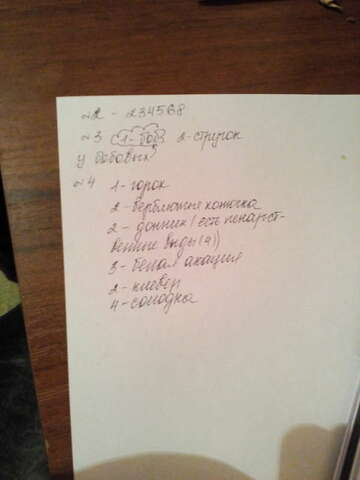 №2 - 234568
№3 1-боб 2-стручок
у бобовых
№4 1-горох
2-верблюжья колючка
2-донник (есть лекарст-
венные виды (4))
3-белая акация
2-клевер
4-солодка